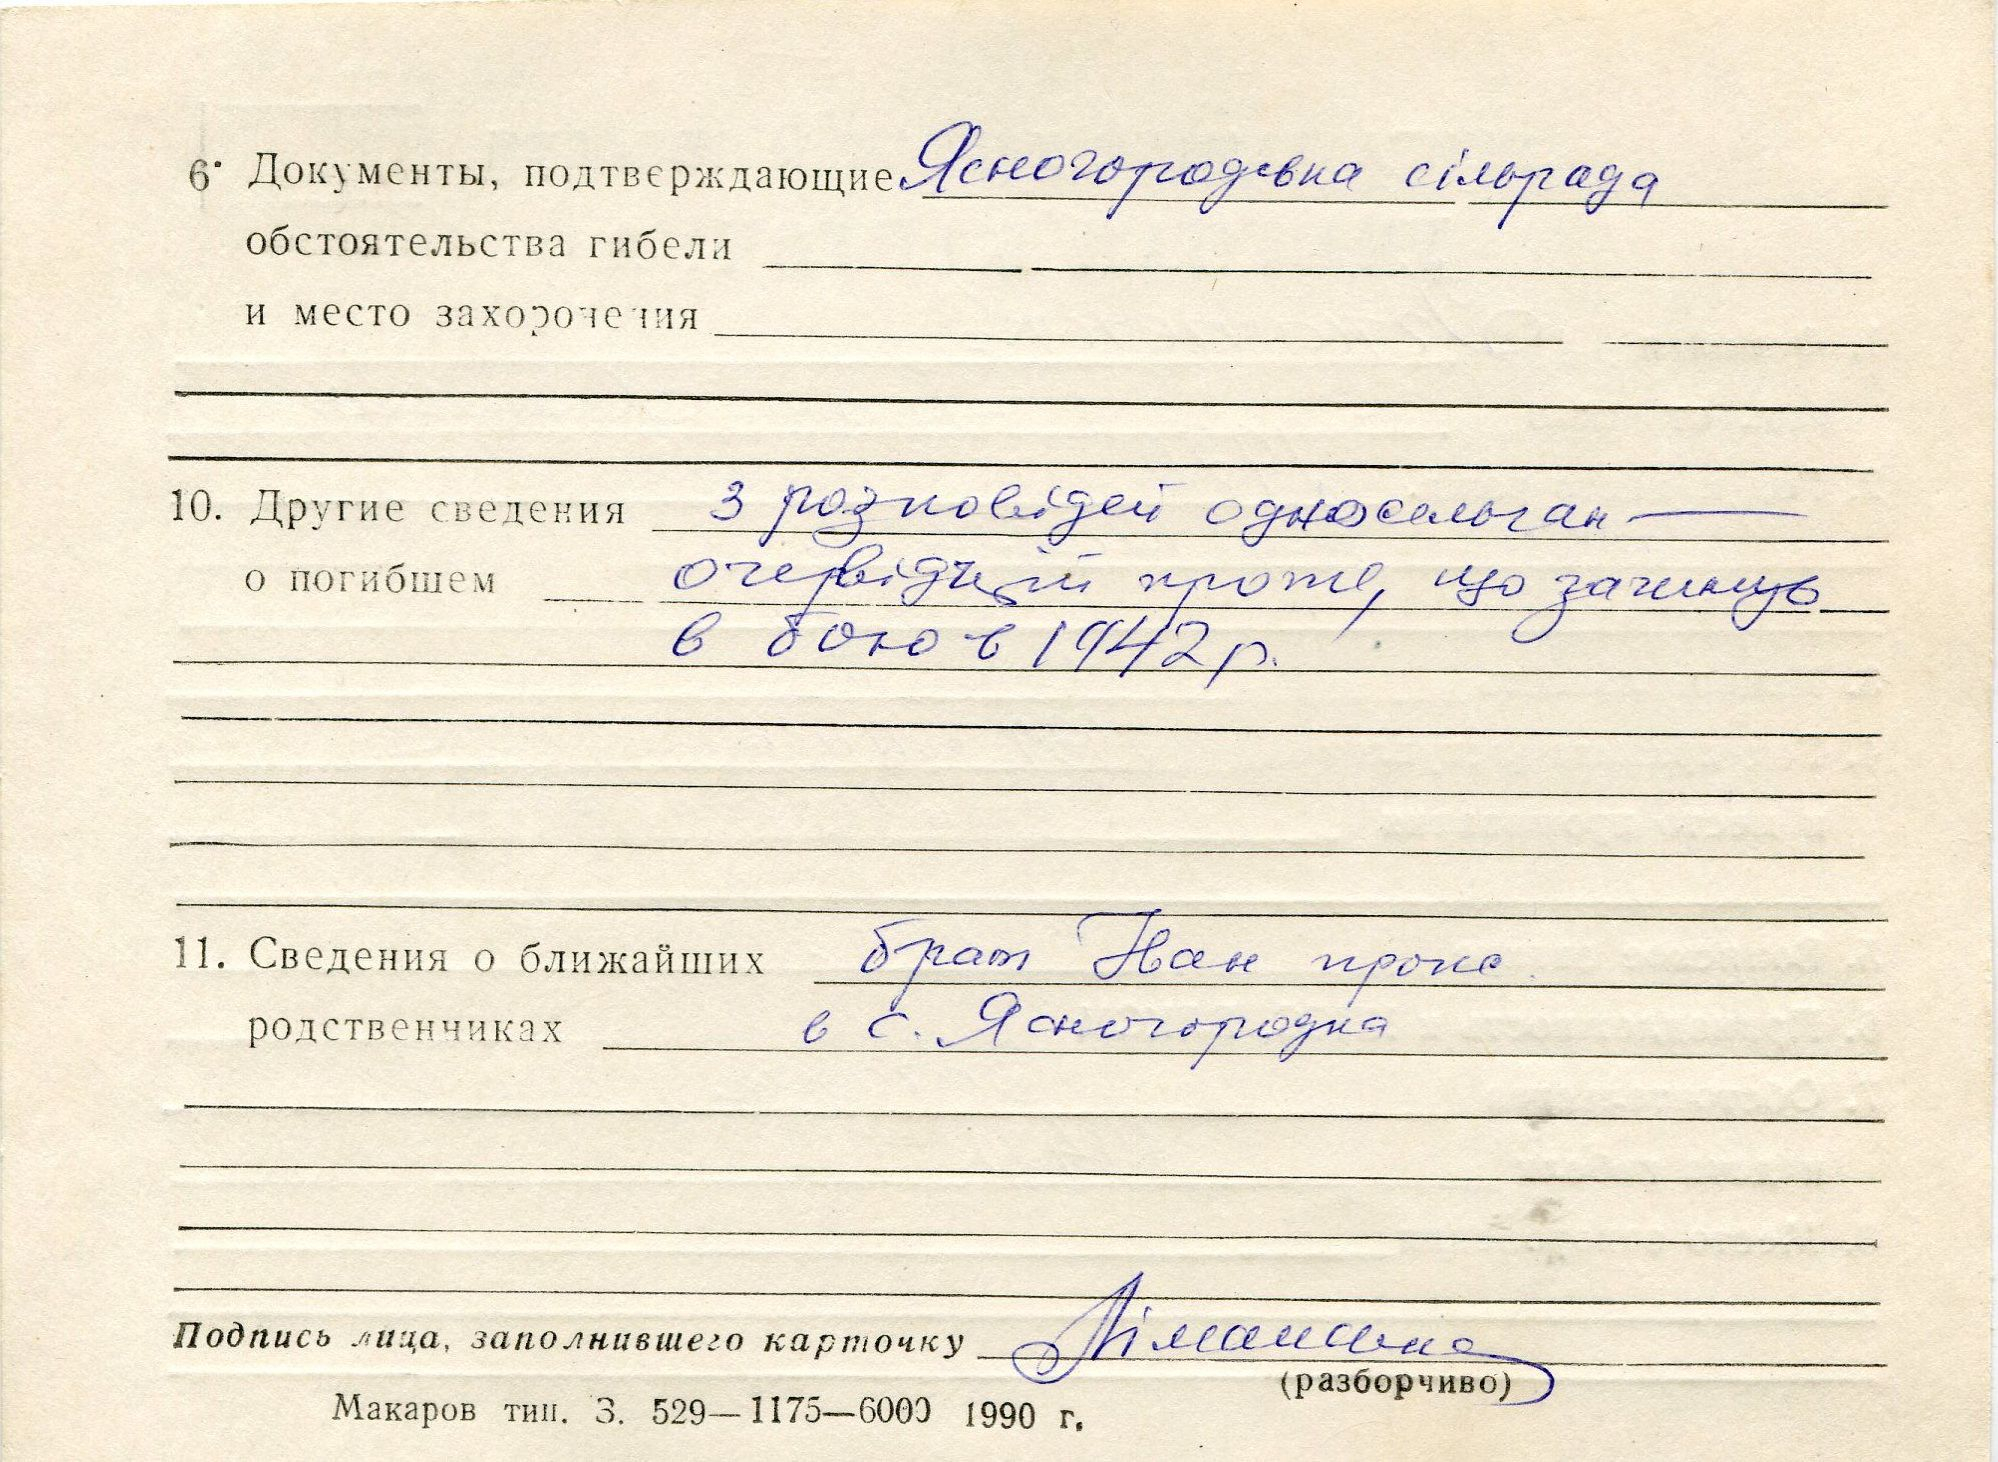 6. Документы, подтверждающие Ясногородська сільрада
обстоятельства гибели
и место захоронения
10. Другие сведения З розповідей односельчан —
о погибшем очевидців про те, що загинув
в бою в 1942 р.
11. Сведения о ближайших брат Іван прож.
родственниках в с. Ясногородка
Подпись лица, заполнившего карточку
(разборчиво)
Макаров тип. З. 529—1175—6000 1990 г.